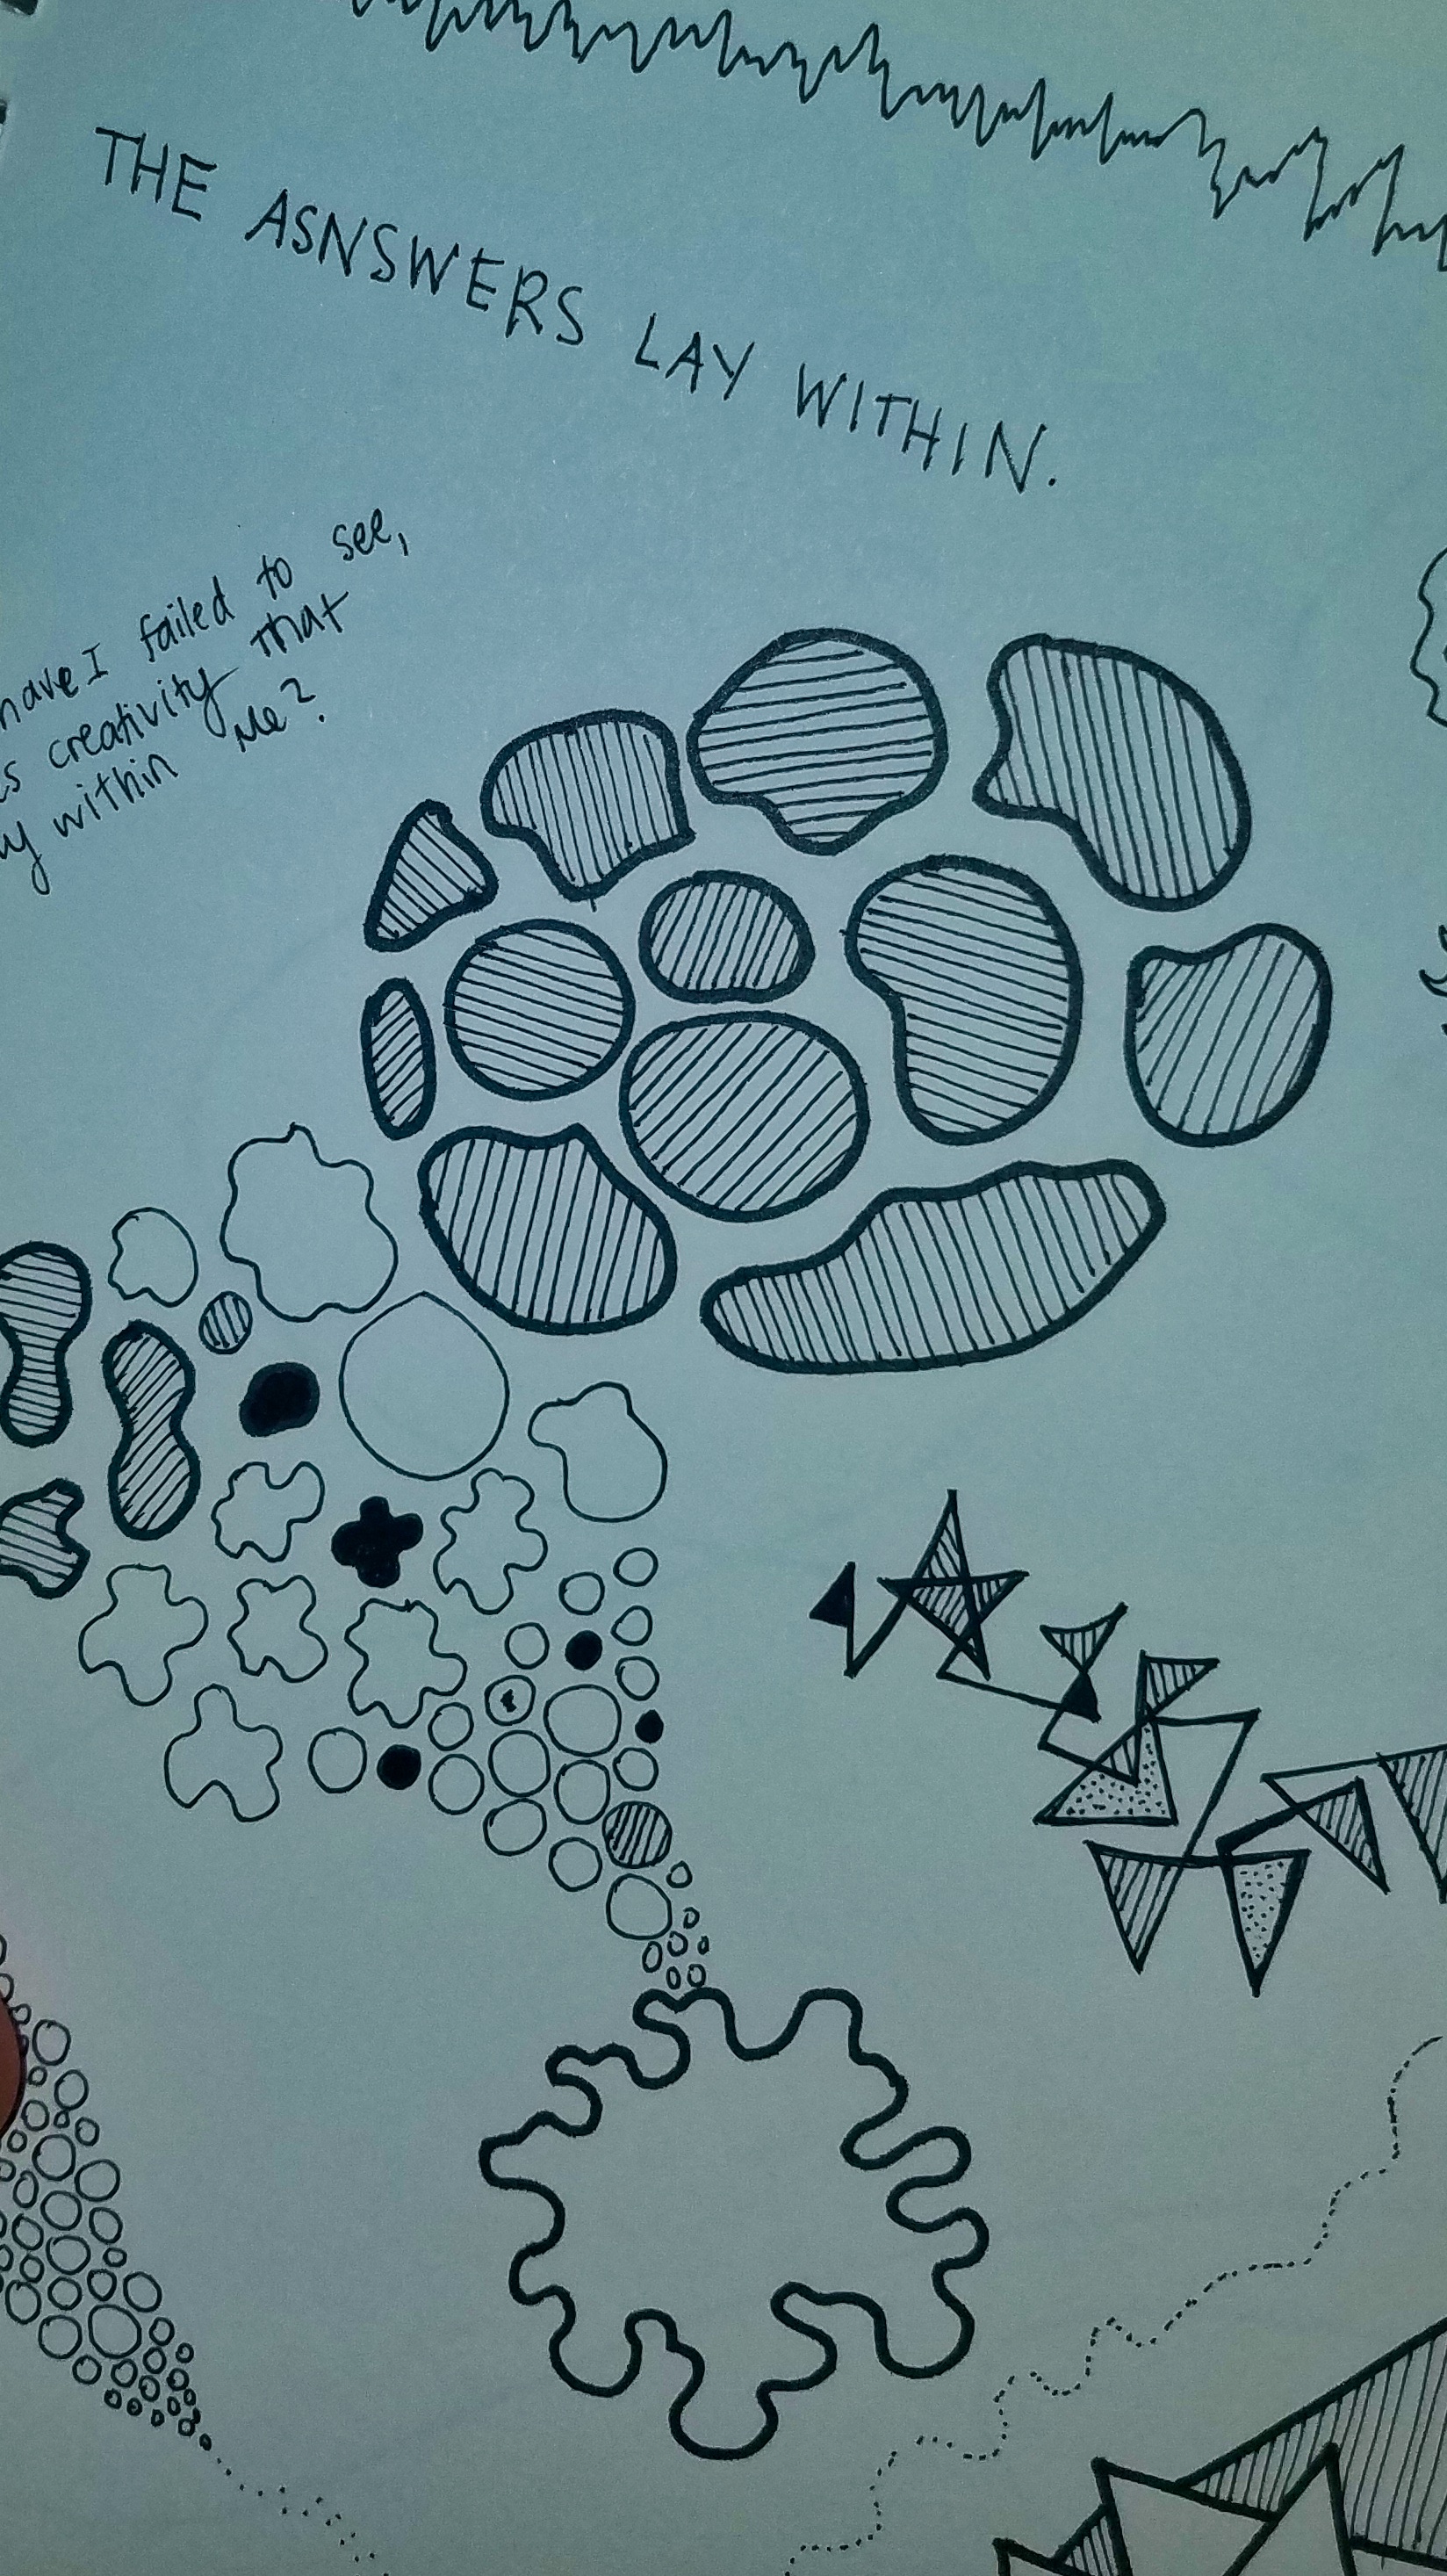 THE ASNSWERS LAY WITHIN.
have I failed to see,
creativity that
within Me?